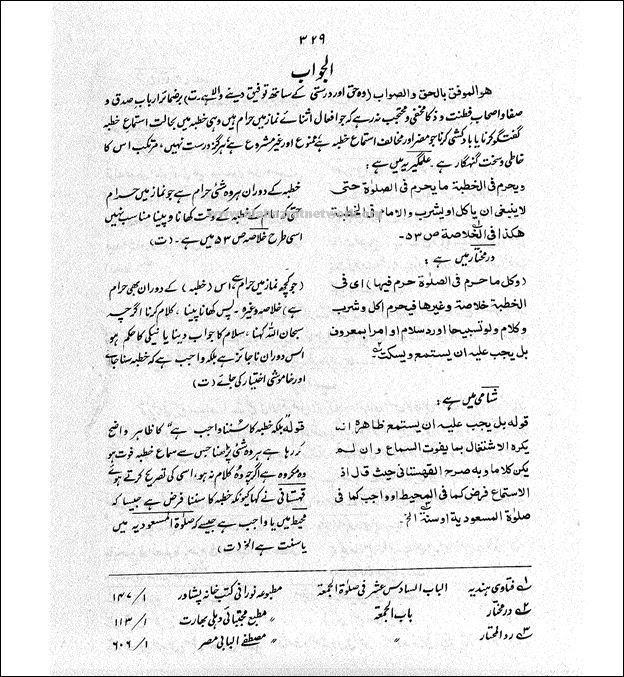 ۳۲۹
الجواب
ھو الموفق بالحق والصواب (وہ حق اور درستی کے ساتھ توفیق دینے والا ہے۔ت) برضمائر ارباب صدق و
صفا و اصحاب فطنت و ذکا مخفی و محتجب نہ رہے کہ جو افعال اثنائے نماز میں حرام ہیں وہی خطبہ میں بحالت استماع خطبہ
گفتگو کرنا یا باد کشی کرنا جو مضر اور مخالف استماع خطبہ ہے ممنوع اور غیر مشروع ہے ہرگز درست نہیں، مرتکب اس کا
خاطی و سخت گنہگار ہے۔ علمگیریہ میں ہے:
ویحرم فی الخطبة ما یحرم فی الصلوٰة حتی
لاینبغی ان یاکل او یشرب والامام فی الخطبة
ھکذا فی الخلاصة ص ۵۳۔
خطبہ کے دوران ہر وہ شئی حرام ہے جو نماز میں حرام
حتی کہ امام کے خطبہ کے وقت کھانا و پینا مناسب نہیں
اسی طرح خلاصہ ص ۵۳ میں ہے۔ (ت)
درمختار میں ہے:
(وکل ما حرم فی الصلوٰة حرم فیھا) ای فی
الخطبة خلاصة وغیرھا فیحرم اکل و شرب
وکلام ولو تسبیحا اورد سلام او امرا بمعروف
بل یجب علیہ ان یستمع ویسکت۔
(جو کچھ نماز میں حرام ہے، اس (خطبہ) کے دوران بھی حرام
ہے) خلاصہ وغیرہ۔ پس کھانا پینا، کلام کرنا اگرچہ
سبحان اللہ کہنا، سلام کا جواب دینا یا نیکی کا حکم ہو
اس دوران ناجائز ہے بلکہ واجب ہے کہ خطبہ سنا جائے
اور خاموشی اختیار کی جائے (ت)
شامی میں ہے:
قولہ بل یجب علیہ ان یستمع ظاھرہ انہ
یکرہ الاشتغال بما یفوت السماع وان لم
یکن کلاما وبہ صرح القھستانی حیث قال اذ
الاستماع فرض کما فی المحیط او واجب کما فی
صلوٰة المسعودیة او سنة الخ۔
قولہ "بلکہ خطبہ کا سننا واجب ہے" کا ظاہر واضح
کر رہا ہے ہر وہ شئی پڑھنا جس سے سماع خطبہ فوت ہو
وہ مکروہ ہے اگرچہ وہ کلام نہ ہو، اسی کی تصریح کرتے ہوئے
قہستانی نے کہا کیونکہ خطبہ کا سننا فرض ہے جیسا کہ
محیط میں یا واجب ہے جیسے کہ صلوٰة المسعودیہ میں
یا سنت ہے الخ (ت)
۱؎ فتاوی ہندیہ الباب السادس عشر فی صلوٰة الجمعة مطبوعہ نورانی کتب خانہ پشاور ۱/۱۴۷
۲؎ درمختار باب الجمعة " مطبع مجتبائی دہلی بھارت ۱/۱۱۳
۳؎ رد المحتار " " مصطفی البابی مصر ۱/۶۰۶